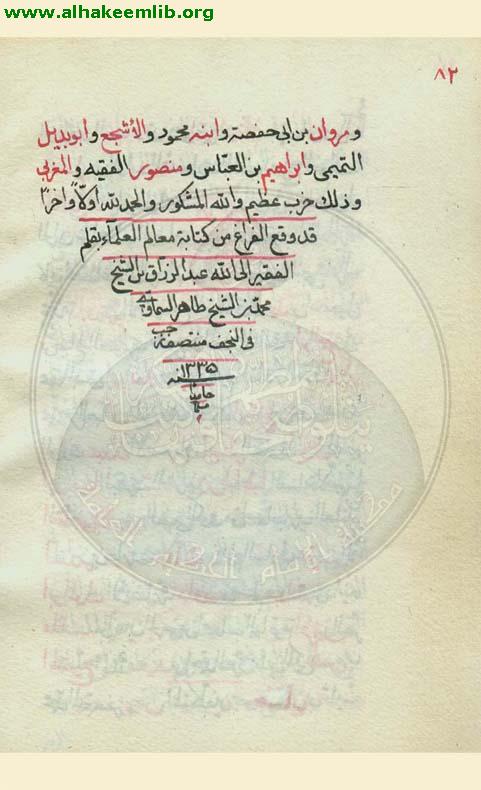 www.alhakeemlib.org
٨٢
ومروان بن ابى حفصة وابنه محمود والأشجع وابو بديل
التميمى وابراهيم بن العباس ومنصور الفقيه والمغربى
وذلك حزب عظيم والله المشكور والحمد لله اولاً واخراً
قد وقع الفراغ من كتابة معالم العلماء بقلم
الفقير الى الله عبد الرزاق بن الشيخ
محمد بن الشيخ طاهر السماوى
فى النجف منتصف رجب
سنه ١٣٣٥
حامدا